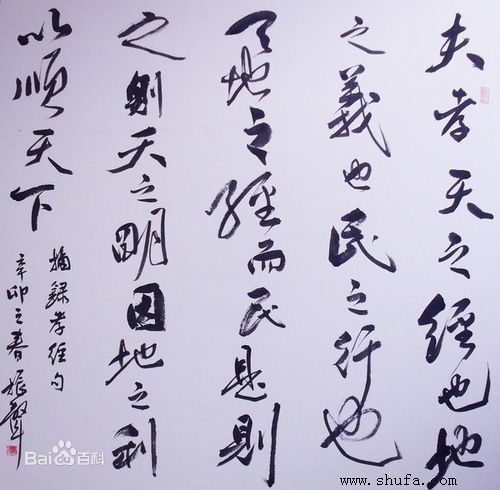 夫孝天之經也地
之義也民之行也
天地之經而民是則
之則天之明因地之利
以順天下
摘録孝经句
辛卯之春振聲
Bai百科
www.shufa.com